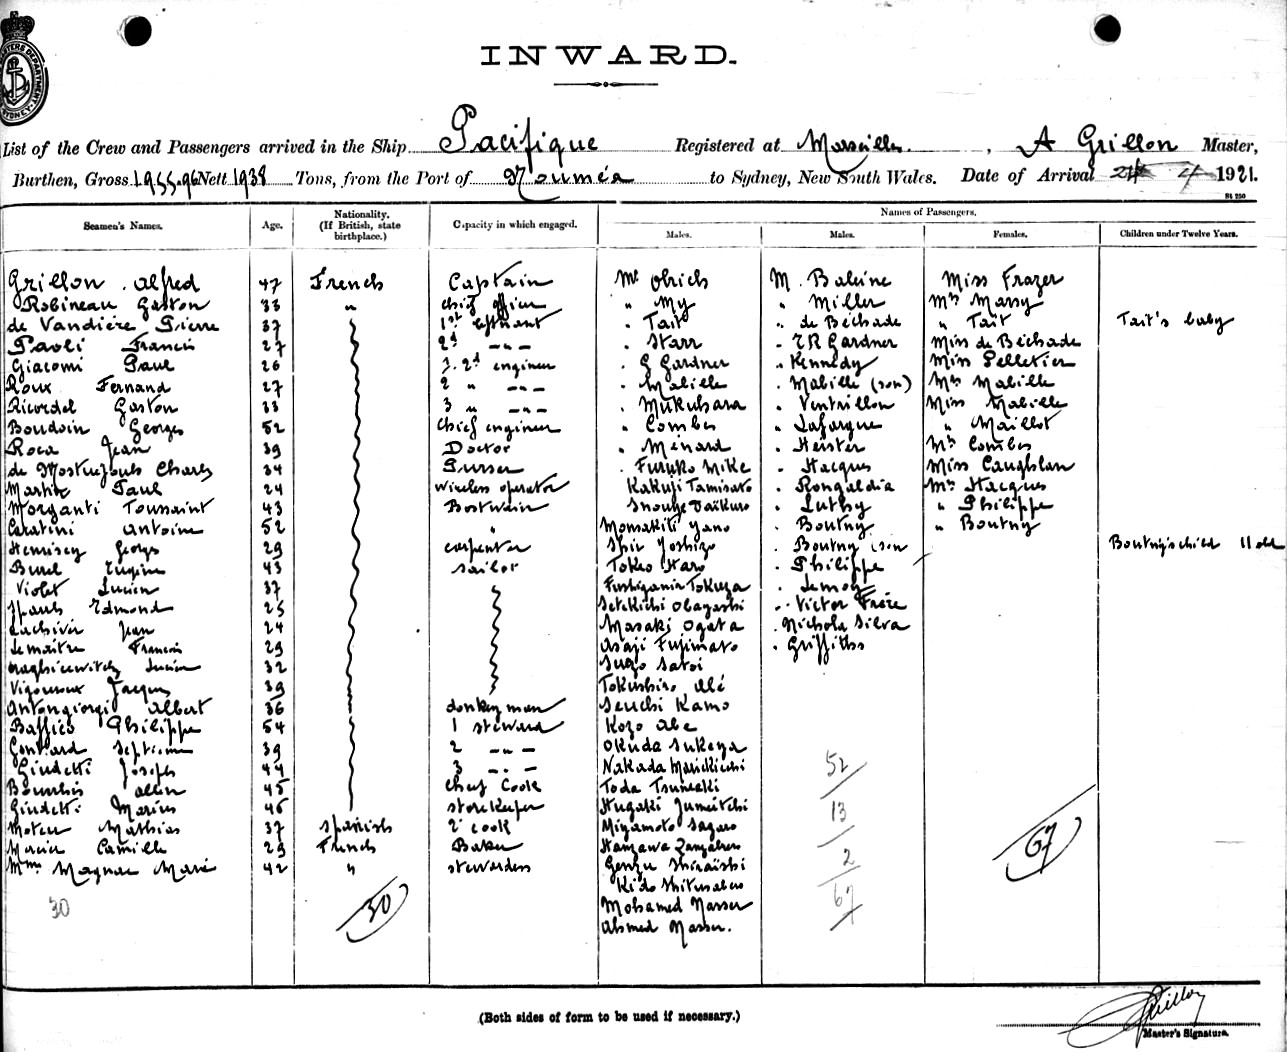 INWARD.
List of the Crew and Passengers arrived in the Ship Pacifique Registered at Marseilles, A Grillon Master,
Burthen, Gross 1955.96 Nett 1938 Tons, from the Port of Nouméa to Sydney, New South Wales. Date of Arrival 24 4 1921.
Names of Passengers.
Seamen's Names. Age. Nationality. (If British, state birthplace.) Capacity in which engaged. Males. Males. Females. Children under Twelve Years.
Grillon Alfred 47 French Captain Mr Olrich M. Baleine Miss Frazer
Robineau Gaston 33 " chief officer " My " Miller Mrs Massy
de Vandière Pierre 37 1st lieutenant . Tait " de Béchade " Tait Tait's baby
Paoli Francis 27 2d -"- . Starr " ER Gardner Miss de Béchade
Giacomi Paul 26 2d engineer . G Gardner . Kennedy Miss Pelletier
Roux Fernand 27 2 " -"- . Mabille . Mabille (son) Mrs Mabille
Ricordel Gaston 33 3 " -"- . Mukuhara . Ventrillon Miss Mabille
Boudoin Georges 52 chief engineer " Combes . Lafargue " Maillot
Roca Jean 39 Doctor . Ménard . Heister Mrs Combes
de Mostuejouls Charles 34 Purser . Furuko Mike . Hacques Miss Caughlan
Martin Paul 24 wireless operator Kakuji Tamisato . Rongaldia Mrs Hacques
Morganti Toussaint 43 Bostwain Snouye Daikuro . Luthy " Philippe
Caratini Antoine 52 " Momakiti Yano . Boutny " Boutny
Hennisey Georges 29 carpenter Shin Yoshizo . Boutny (son Boutny's child 11 old
Burel Eugène 43 sailor Tokeo Haro . Philippe
Violet Lucien 37 Fushigamin Tokuya . Lemoy
Edmond 25 Setekichi Obayashi .. Victor Frère
Lachiver Jean 24 Masaki Ogata . Nichola Silva
Lemaitre Francois 29 Asaji Fujimato . Griffiths
Lucien 32 Sugo Satoi
Vigouroux Jacques 39 Tokushiro Abé
Antongiorgi Albert 36 donkeyman Seuchi Kamo
Baffico Philippe 54 1 steward Kozo Abe
Septieme 39 2 -"- Okuda Sukeya
Giudetti Joseph 44 3 -"- Nakada Manikichi 52
Bourbis 45 chef Cook Toda Tsuneaki
Giudetti Marius 46 storekeeper Hugaki Jumeitchi 13
Mateu Mathias 37 Spanish 2d cook Miyamoto Saguro
Camille 29 French Baker Hanzawa 2 67
Mme Magnac Marie 42 " stewardess Genzu Shiraishi
Kido Shiturabeu 67
30 30 Mohamed Nasser
Ahmed Nasser.
(Both sides of form to be used if necessary.)
Grillon
Master's Signature.